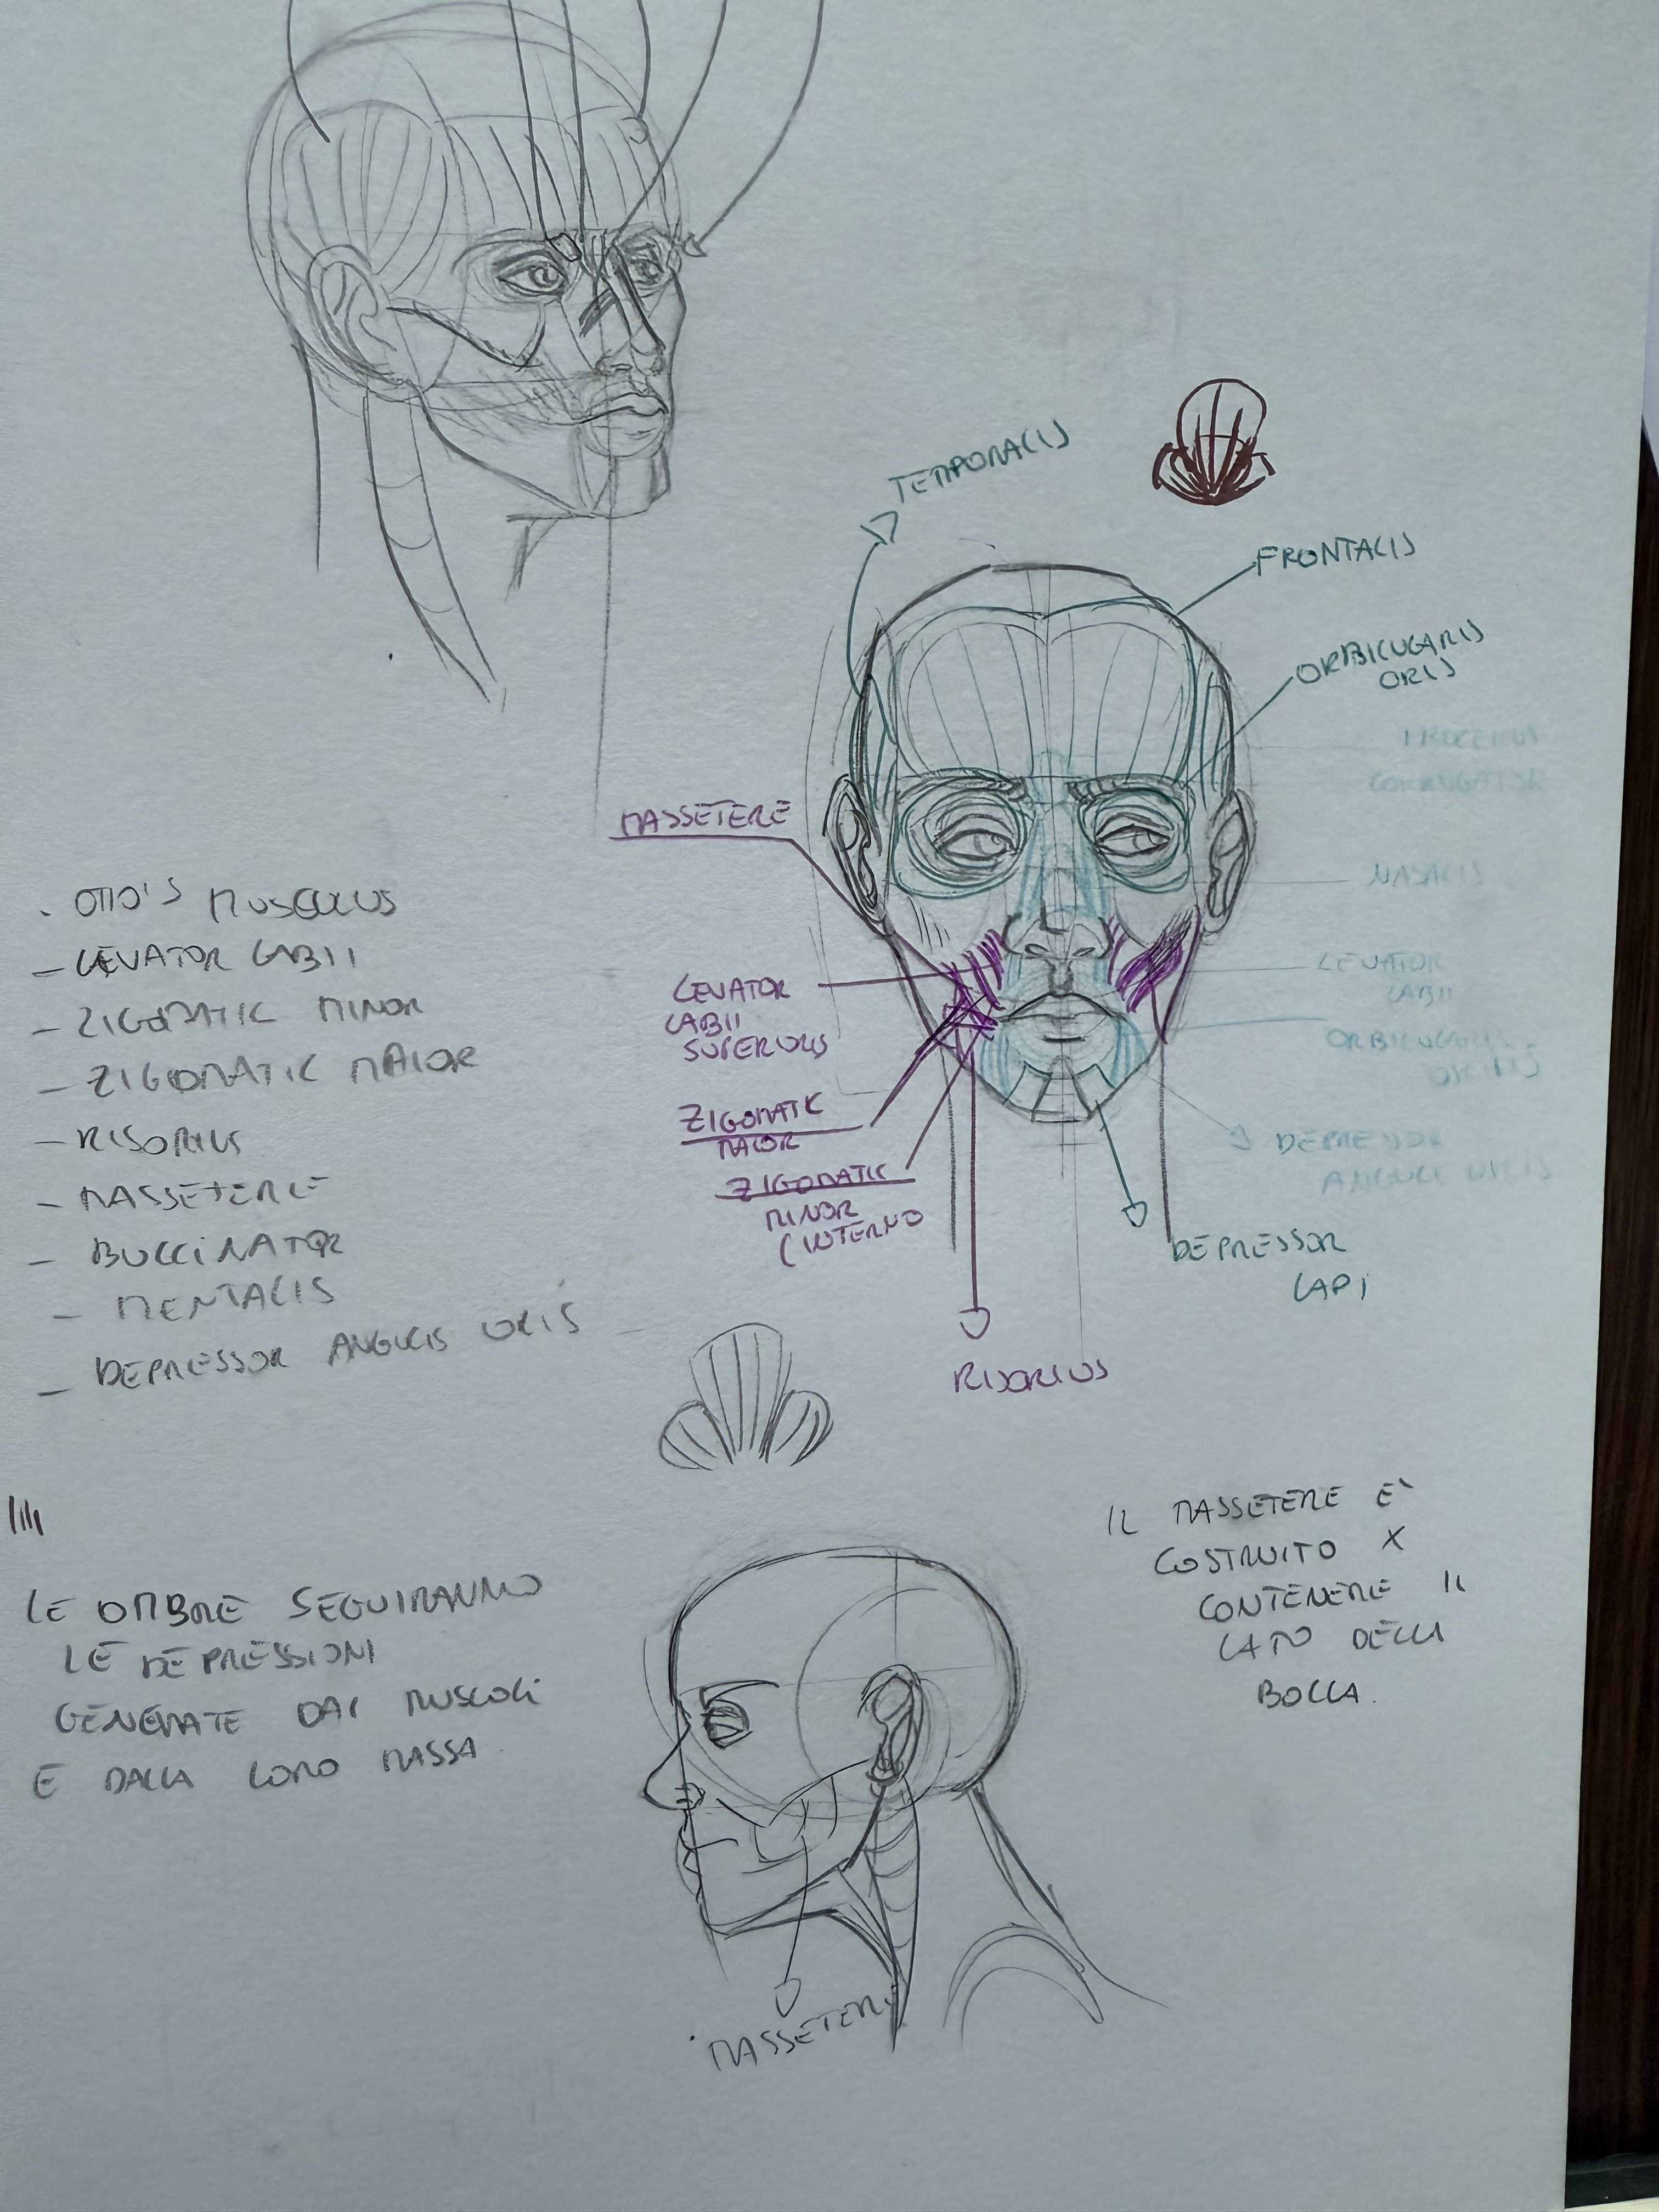 TEMPORALIS
FRONTALIS
ORBICUGARIS
ORIS
PROCERUS
CORRUGATOR
MASSETERE
NASALIS
· OTTO'S MUSCULUS
– LEVATOR LABII
– ZIGOMATIC MINOR
– ZIGOMATIC MAIOR
– RISORIUS
– MASSETERE
– BUCCINATOR
– MENTALIS
– DEPRESSOR ANGULIS ORIS
LEVATOR
LABII
SUPERIORIS
LEVATOR
LABII
ORBICUGARIS
ZIGOMATIC
MAIOR
ZIGOMATIC
MINOR
(INTERNO
DEPRESSOR
ANGULI ORIS
DEPRESSOR
LAPI
RISORIUS
LE OMBRE SEGUIRANNO
LE DEPRESSIONI
GENERATE DAI MUSCOLI
E DALLA LORO MASSA
IL MASSETERE E'
COSTRUITO X
CONTENERE IL
LATO DELLA
BOCCA.
MASSETERE